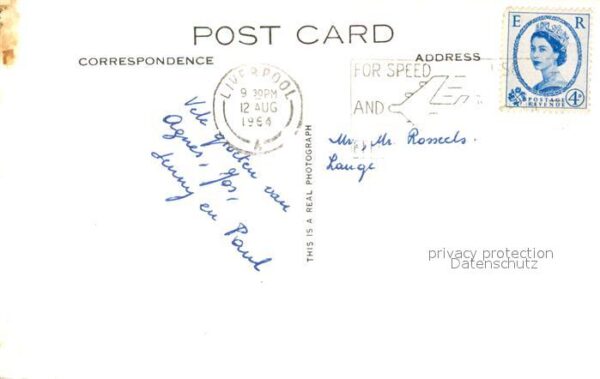 POST CARD
CORRESPONDENCE
ADDRESS
LIVERPOOL
9 30PM
12 AUG
1964
A
FOR SPEED
AND
E R
POSTAGE
REVENUE
4D
Vele groeten van
Agnes, Jos,
Jenny en Paul
THIS IS A REAL PHOTOGRAPH
Mr, Mr. Rosseels.
Lange
privacy protection
Datenschutz